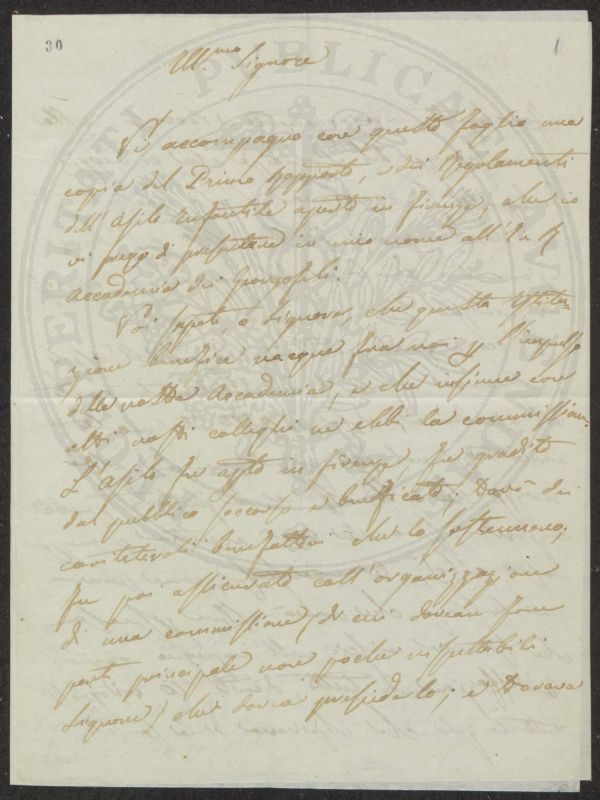 30
1
Ill.mo Signore
Vi accompagno con questo foglio una
copia del Primo Rapporto, e dei Regolamenti
dell'Asilo Infantile aperto in Firenze, che io
vi prego di presentare in mio nome all'I. e R.
Accademia dei Georgofili.
Voi sapete o Signore, che questa Istitu-
zione benefica nacque fra noi p l'impulso
della nostra Accademia, e che insieme con
altri nostri colleghi ne ebbi la commissione.
L'Asilo fu apto in Firenze, fu gradito
dal pubblico soccorso e beneficato; trovò dei
caritatevoli benefattori che lo sostennero;
fu poi assicurato coll'organizzazione
di una commissione (di cui dovean fare
parte principale non poche rispettabili
Signore) che dovea presiederlo; e dovava